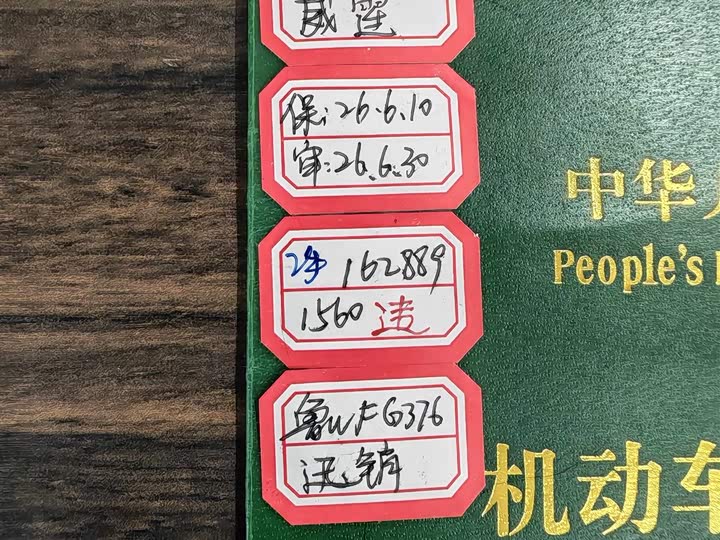 威霆
保:26.6.10
审:26.6.30
2手 162889
1560 违
鲁WFG376
迅销
中华人
People's
机动车